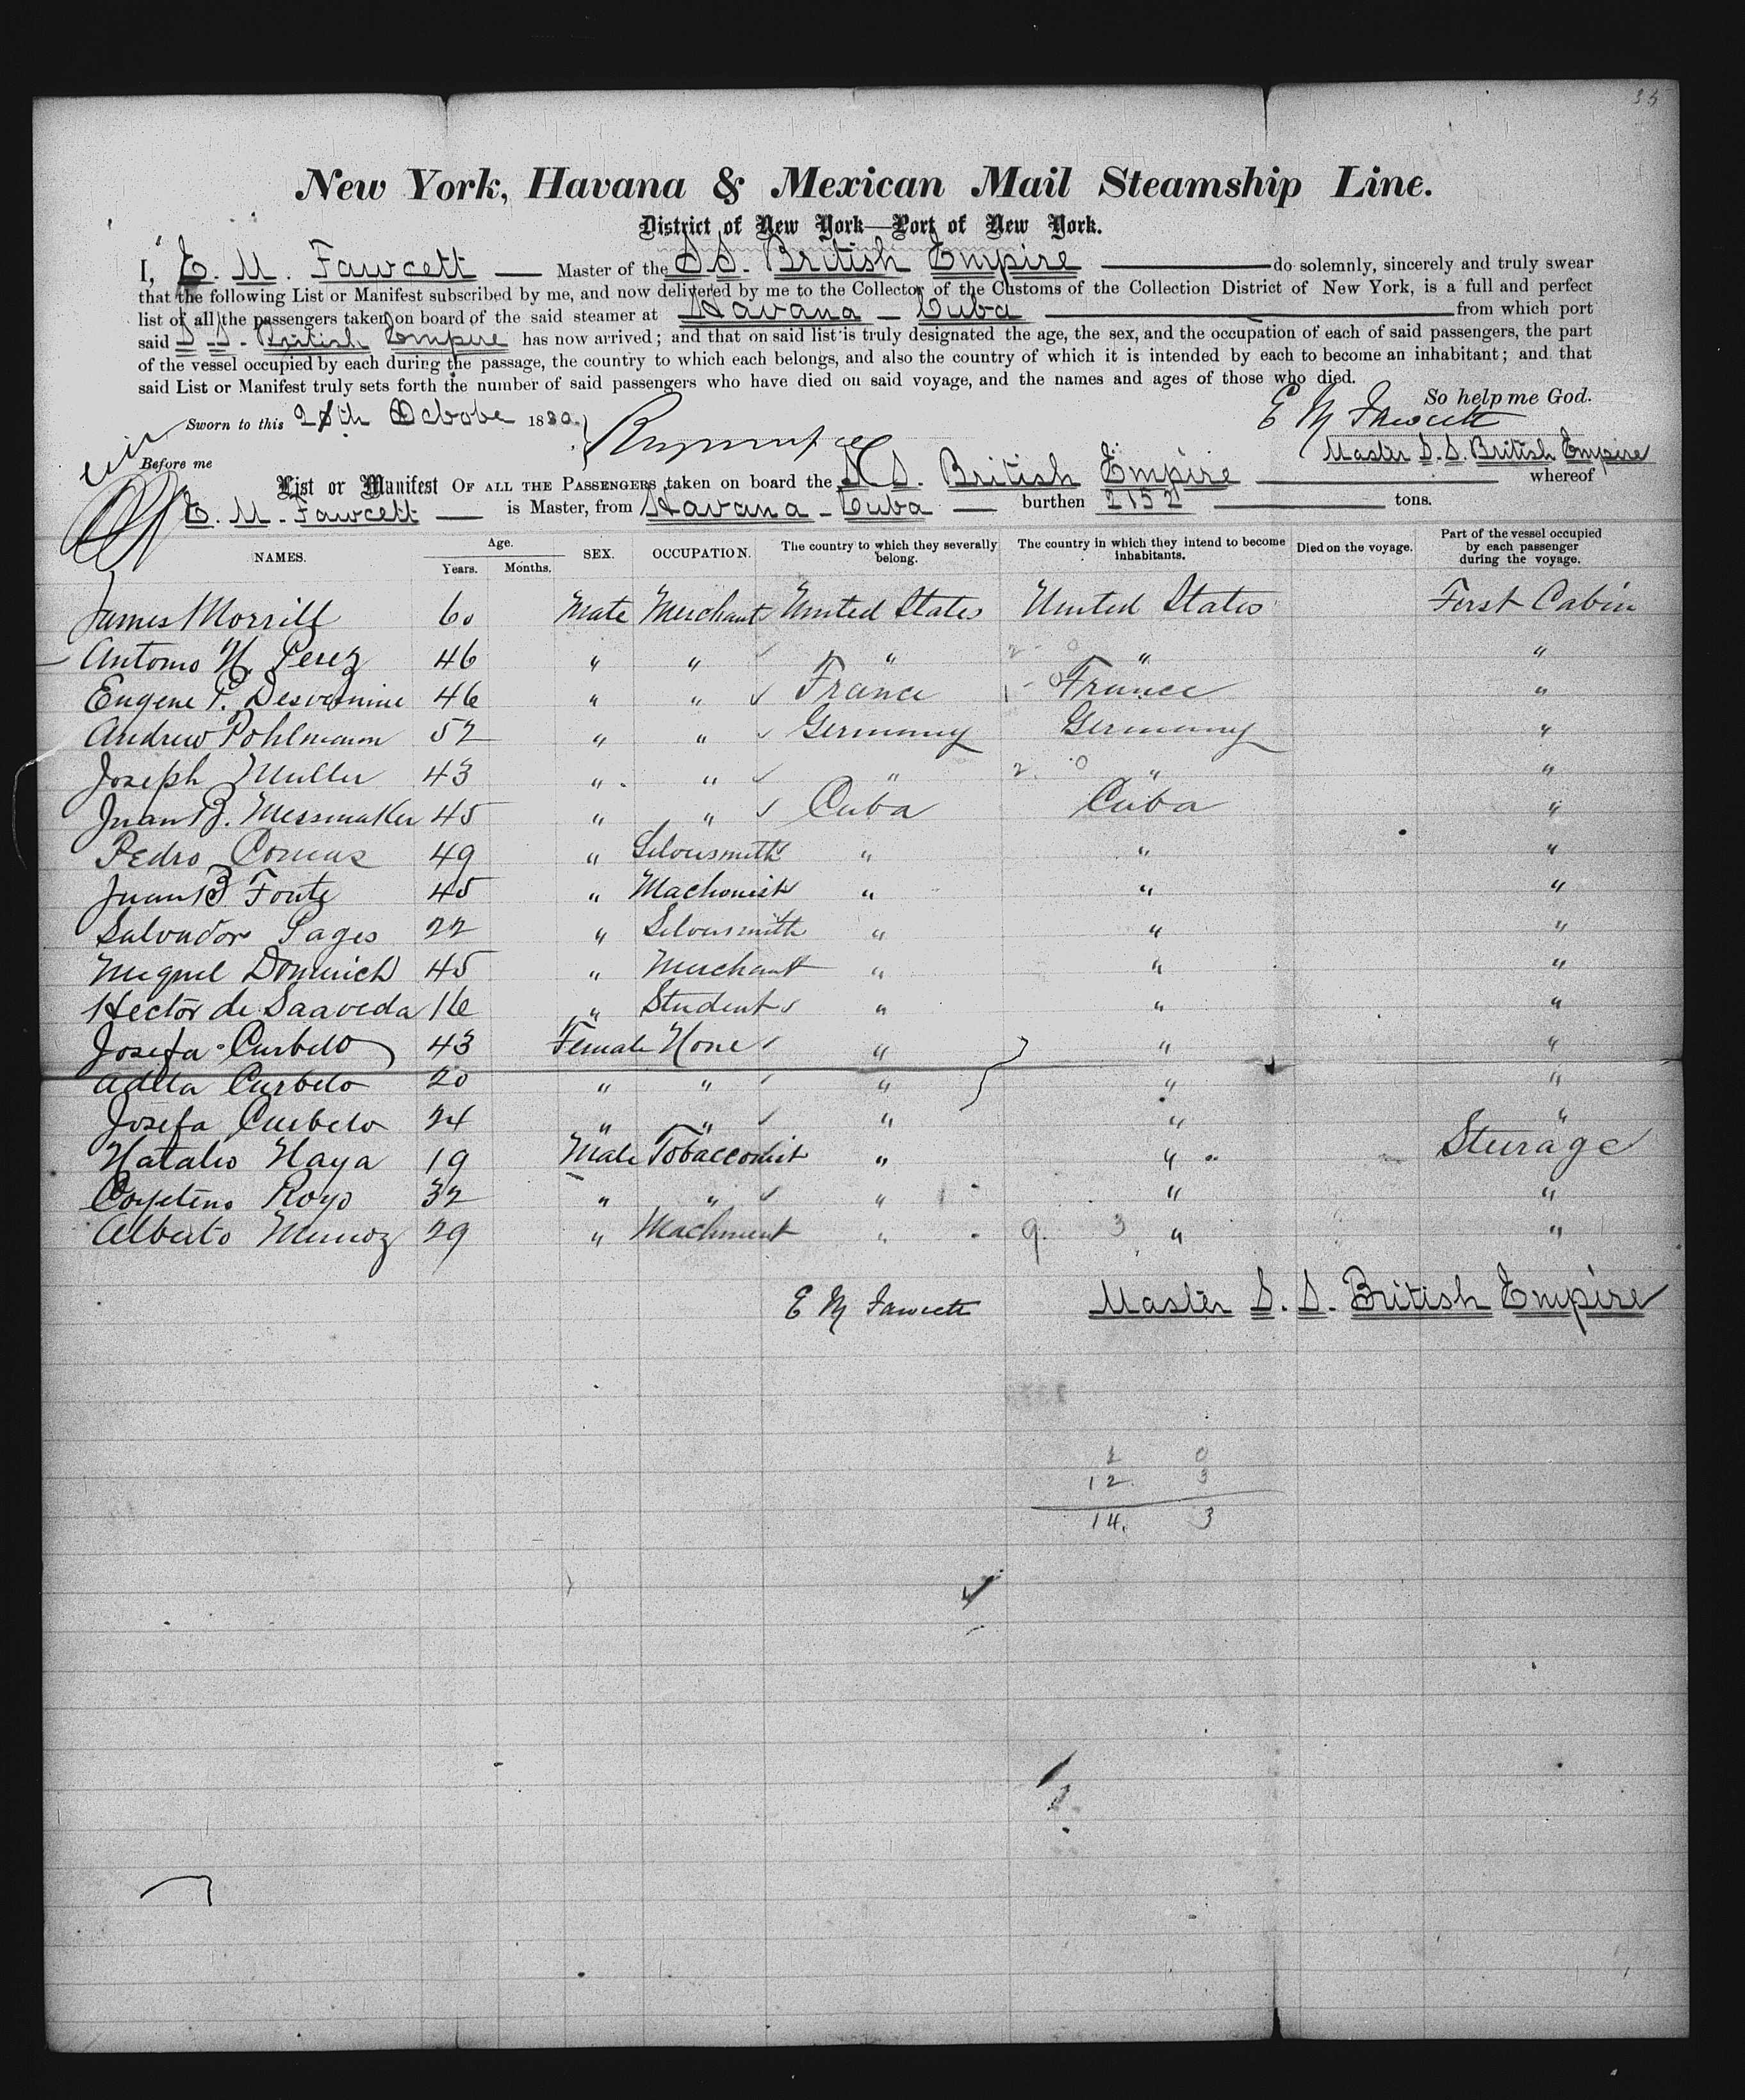 New York, Havana & Mexican Mail Steamship Line.
District of New York—Port of New York.
I, E. M. Fawcett — Master of the S S. British Empire — do solemnly, sincerely and truly swear
that the following List or Manifest subscribed by me, and now delivered by me to the Collector of the Customs of the Collection District of New York, is a full and perfect
list of all the passengers taken on board of the said steamer at Havana - Cuba — from which port
said S. S. British Empire has now arrived; and that on said list is truly designated the age, the sex, and the occupation of each of said passengers, the part
of the vessel occupied by each during the passage, the country to which each belongs, and also the country of which it is intended by each to become an inhabitant; and that
said List or Manifest truly sets forth the number of said passengers who have died on said voyage, and the names and ages of those who died.
So help me God.
Sworn to this Octobe 1880.
E M Fawcett
Master S. S. British Empire
Before me
List or Manifest OF ALL THE PASSENGERS taken on board the S S. British Empire — whereof
E. M. Fawcett — is Master, from Havana - Cuba — burthen 2152 — tons.
NAMES. Age. Years. Months. SEX. OCCUPATION. The country to which they severally belong. The country in which they intend to become inhabitants. Died on the voyage. Part of the vessel occupied by each passenger during the voyage.
James Morrill 60 Male Merchant United States United States First Cabin
Antonio N. Perez 46 " " " 2 - 0 " "
Eugene P. Desvernine 46 " " France 1 - 0 France "
Andrew Pohlmann 52 " " Germany Germany "
Joseph Muller 43 " " " 2. 0 " "
Juan B. Messmaker 45 " " Cuba Cuba "
Pedro Comas 49 " Silversmith " " "
Juan B Fonte 45 " Machonist " " "
Salvador Pages 22 " Silversmith " " "
Miguel Dominich 45 " Merchant " " "
Hector de Saaveda 16 " Student " " "
Josefa Curbelo 43 Female None " " "
Adela Curbelo 20 " " " " "
Josefa Curbelo 24 " " " " "
Natalio Naya 19 Male Tobacconist " " Sturage
Coyetano Royo 32 " " " " "
Alberto Munoz 29 " Machinist " 9. 3 " "
E M Fawcett Master S. S. British Empire
2 0
12. 3
14. 3